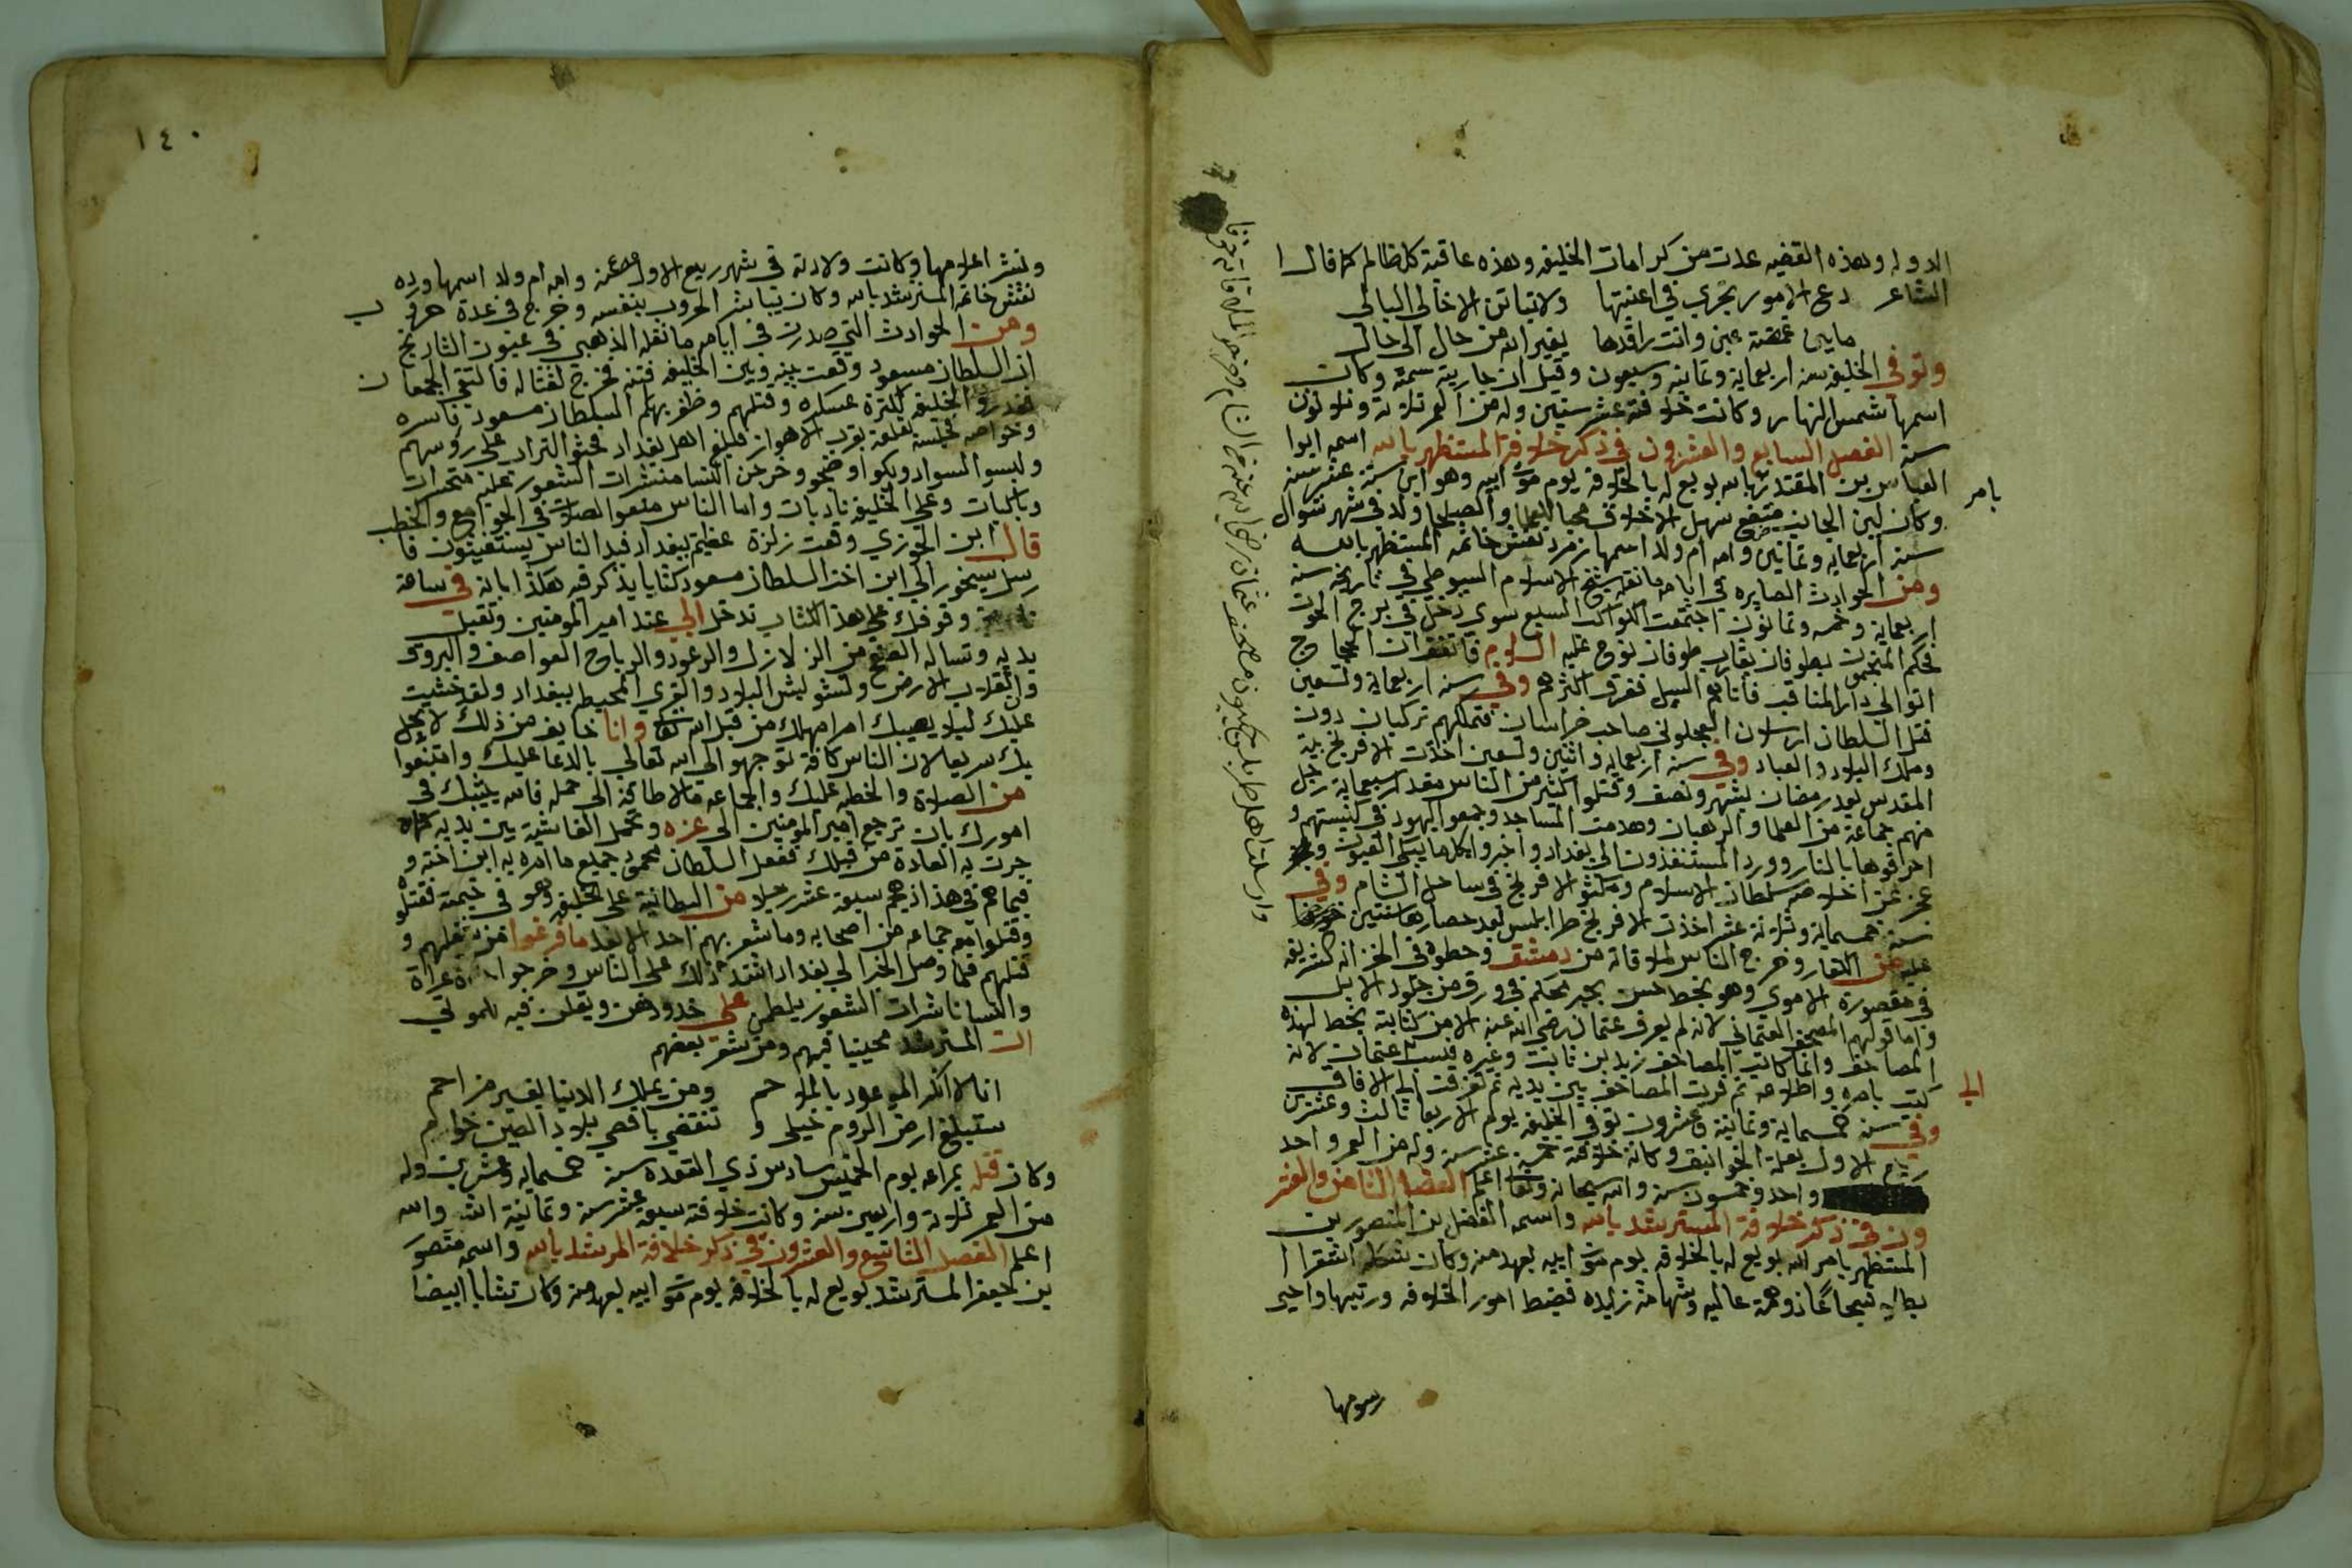 الدوله وهذه القضيه عدت من كرامات الخليفه وهذه عاقبة كل ظالم كما قال ا
الشاعر دع الامور تجري في اعنتها ولا تباتن الا خالي البالي
ما بين غمضة عين وانت راقدها يغير الله من حال الى حال
وتوفي الخليفه سنه اربعماية وثمانيه وسبعون وقيل ان جاريته سمته وكان
اسمها شمس النهار وكانت خلافته عشر سنين وله من العمر ثلاثة وثلاثون
سنه الفصل السابع والعشرون في ذكر خلافة المستظهر بالله اسمه ابوا
العباس بن المقتدي بالله بويع له بالخلافه يوم موت ابيه وهو ابن ستة عشر سنه
بامر
وكان لين الجانب سهل الاخلاق محبا للعلما والصلحا ولد في شهر شوال
سنه اربعمايه وثمانين وامه ام ولد اسمها زمرد نقش خاتمه المستظهر بالله
ومن الحوادث الصايره في ايامه ما نقله شيخ الاسلام السيوطي في تاريخه سنة
اربعماية وخمسه وثمانون اجتمعت الكواكب السبع سوى زحل في برج الحوت
فحكم المنجمون بطوفان يقارب طوفان نوح عليه السلام فاتفق ان الحجاج
اتوا الى دار المناقب فاتاهم السيل فغرق اكثرهم وفي سنه اربعماية وتسعين
قتل السلطان ارسلان السلجوقي صاحب خراسان فتملكهم تركيات دون
وملك البلاد والعباد وفي سنه اربعمايه واثنين وتسعين اخذت الافرنج بيت
المقدس بعد رمضان بشهر ونصف وقتلوا كثير من الناس مقدار سبعماية رجل
منهم جماعة من العلما والرهبان وهدمت المساجد وجمعوا اليهود في كنيستهم و
احرقوها بالنار وورد المستنفذون الى بغداد واخبروا بكلما يبكي العيون
عجز عن اخلاصه سلطان الاسلام ومكثو الافرنج في ساحل الشام وفي
سنه خمسماية وثلاثة عشر اخذت الافرنج طرابلس بعد حصارها سنتين
عليه من الكفار وخرج الناس لملاقاته من دمشق وحطوه في الخزانه الشريفه
في مقصورة الاموي وهو بخط حسن بحبر محكم في ورق من جلود الابل
واما قولهم المصحف العثماني لانه لم يعرف عثمان رضي الله عنه الا من كتابته بخط لهذه
المصاحف وانما كاتب المصاحف زيد بن ثابت وغيره فنسب عثمان لانه
كتب بامره واطلاعه ثم قريت المصاحف بين يديه ثم تفرقت الى الافاق
الى
وفي سنه خمسماية وثمانية وعشرون توفي الخليفه يوم الاربعا ثالث وعشرين
ربيع الاول بعلة الخوانيق وكانة خلافته خمسة عشر سنه وله من العمر واحد
واحد وخمسون سنه والله سبحانه وتعالى اعلم الفصل الثامن والعشر
ون في ذكر خلافة المسترشد بالله واسمه الفضل بن المنصور بن
المستظهر بامر الله بويع له بالخلافه يوم موت ابيه بعهد منه وكان الفقرا
بطلا شجاعا ذو همة عاليه وشهامة زايده فضبط امور الخلافه ورتبها واحيى
رسومها
ونشر اعلامها وكانت ولادته في شهر ربيع الاول وامه ام ولد اسمها ورده
نقش خاتمه المسترشد بالله وكان يباشر الحروب بنفسه وخرج في عدة حروب
ومن الحوادث التي صدرت في ايامه ما نقله الذهبي في عيون التاريخ
ان السلطان مسعود وقعت بينه وبين الخليفه فتنه فخرج لقتاله فالتقى الجمعان
فغدروا الخليفه اكثرة عسكره وقتلهم وظفر بهم السلطان مسعود فاسره
وخواصه فحبسه بقلعة بقرب الاهواز فبلغ اهل بغداد فحثو التراب على رؤسهم
ولبسوا السواد وبكوا وضجو وخرجن النسا منشرات الشعور عليه متحسرات
وباكيات وعلى الخليفه نادبات واما الناس منعوا الصلاة في الجوامع والخطب
قال ابن الجوزي وقعت زلزة عظيمه ببغداد فبدا الناس يستغيثون فا
رسل سنجور الى ابن اخته السلطان مسعود كتابا يذكر فيه هكذا ابانه في ساعة
وقوفك على هذا الكتاب تدخل الى عند امير المومنين وتقبل
يديه وتساله الصفح من الزلازل والرعود والرياح العواصف والبروق
وانقلاب الارض وتشويش البلاد والقرى المحيطه ببغداد ولقد خشيت
عليك ليلا يصيبك امر امهلك من قبل الله تعالى وانا خايف من ذلك لا يحل
بك سريعا لان الناس كافة توجهو الى الله تعالى بالدعا عليك وامتنعوا
من الصلاة والخطبه عليك والجماعه
امورك بان ترجع امير المومنين الى عزه وتحمل الغاشية بين يديه كما
جرت به العادة من قبلك ففعل السلطان محمود جميع ما امره به ابن اخته و
فيما هم في هذا اذ هجم سبعة عشر رجلا من الباطانية على الخليفه وهو في خيمته فقتلو
وقتلوا معه جماعه من اصحابه وما شعر بهم احد الا بعد ما فرغوا من شغلهم و
قتلهم فلما وصل الخبر الى بغداد اشتد ذلك على الناس وخرجوا حفاة عراة
والنسا ناشرات الشعور يلطمن على خدودهن ويقلن فيه المراثي
ات المسترشد محببا فيهم ومن شعر بعضهم
انا الاشقر الموعود بالملاحم ومن يملك الدنيا بغير مزاحم
ستبلغ ارض الروم خيلي و تنتضي باقصى بلاد الصين صوارم
وكان قتله بمراغه يوم الخميس سادس ذي القعدة سنة خمسمايه وعشرين وله
من العمر ثلاثة واربعين سنه وكانت خلافته سبعة عشر سنه وثمانية اشهر والله
اعلم الفصل التاسع والعشرون في ذكر خلافة المرشد بالله واسمه منصور
بن جعفر المسترشد بويع له بالخلافه يوم موت ابيه بعهد منه وكان شابا ابيضا
١٤٠